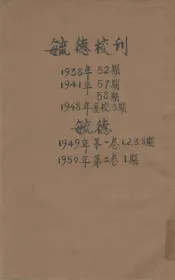 毓德校刊
1938年 52期
1941年 57期
58期
1948年 复校3期
毓德
1949年第一卷1,2,3,8期
1950年第二卷1期